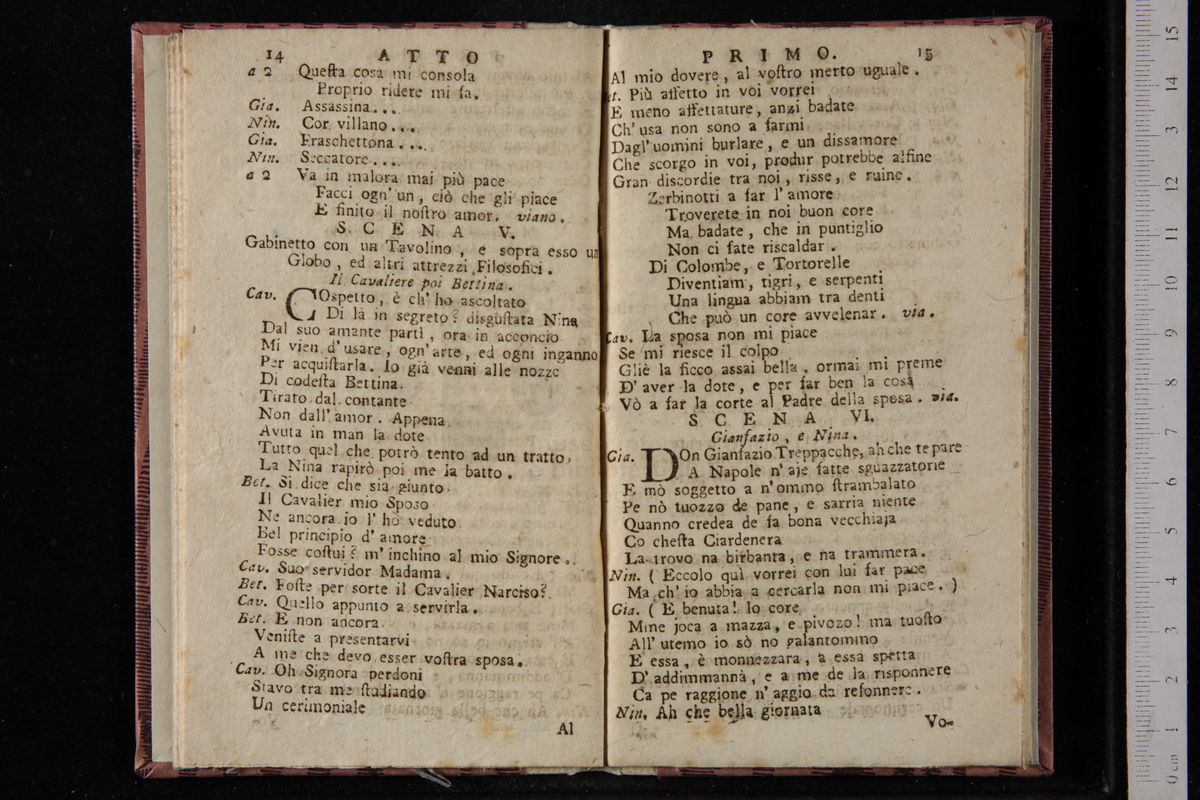 14 ATTO
a 2 Questa cosa mi consola
Proprio ridere mi fa.
Gia. Assassina...
Nin. Cor villano....
Gia. Fraschettona....
Nin. Seccatore....
a 2 Va in malora mai più pace
Facci ogn' un, ciò che gli piace
E finito il nostro amor. viano.
SCENA V.
Gabinetto con un Tavolino, e sopra esso un
Globo, ed altri attrezzi Filosofici.
Il Cavaliere poi Bettina.
Cav. COspetto, è ch' ho ascoltato
Di là in segreto? disgustata Nina
Dal suo amante partì, ora in acconcio
Mi vien d' usare, ogn' arte, ed ogni inganno
Per acquistarla. Io già venni alle nozze
Di codesta Bettina.
Tirato dal contante
Non dall' amor. Appena
Avuta in man la dote
Tutto quel che potrò tento ad un tratto,
La Nina rapirò poi me la batto.
Bet. Si dice che sia giunto
Il Cavalier mio Sposo
Ne ancora io l' hò veduto
Bel principio d' amore
Fosse costui? m' inchino al mio Signore.
Cav. Suo servidor Madama.
Bet. Foste per sorte il Cavalier Narciso?
Cav. Quello appunto a servirla.
Bet. E non ancora
Veniste a presentarvi
A me che devo esser vostra sposa.
Cav. Oh Signora perdoni
Stavo tra me studiando
Un cerimoniale
Al
PRIMO. 15
Al mio dovere, al vostro merto uguale.
et. Più affetto in voi vorrei
E meno affettature, anzi badate
Ch' usa non sono a farmi
Dagl' uomini burlare, e un dissamore
Che scorgo in voi, produr potrebbe alfine
Gran discordie tra noi, risse, e ruine.
Zerbinotti a far l' amore
Troverete in noi buon core
Ma badate, che in puntiglio
Non ci fate riscaldar.
Di Colombe, e Tortorelle
Diventiam, tigri, e serpenti
Una lingua abbiam tra denti
Che può un core avvelenar. via.
Cav. La sposa non mi piace
Se mi riesce il colpo
Gliè la ficco assai bella, ormai mi preme
D' aver la dote, e per far ben la cosa
Vò a far la corte al Padre della sposa. via.
SCENA VI.
Gianfazio, e Nina.
Gia. DOn Gianfazio Treppacche, ah che te pare
A Napole n' aje fatte sguazzatorie
E mò soggetto a n' ommo strambalato
Pe nò tuozzo de pane, e sarria niente
Quanno credea de fa bona vecchiaja
Co chesta Ciardenera
La trovo na birbanta, e na trammera.
Nin. ( Eccolo quì vorrei con lui far pace
Ma ch' io abbia a cercarla non mi piace. )
Gia. ( E benuta! lo core
Mme joca a mazza, e pivozo! ma tuosto
All' utemo io sò no galantommo
E essa, è monnezzara, a essa spetta
D' addimmannà, e a me de la risponnere
Ca pe raggione n' aggio da resonnere.
Nin. Ah che bella giornata
Vo-